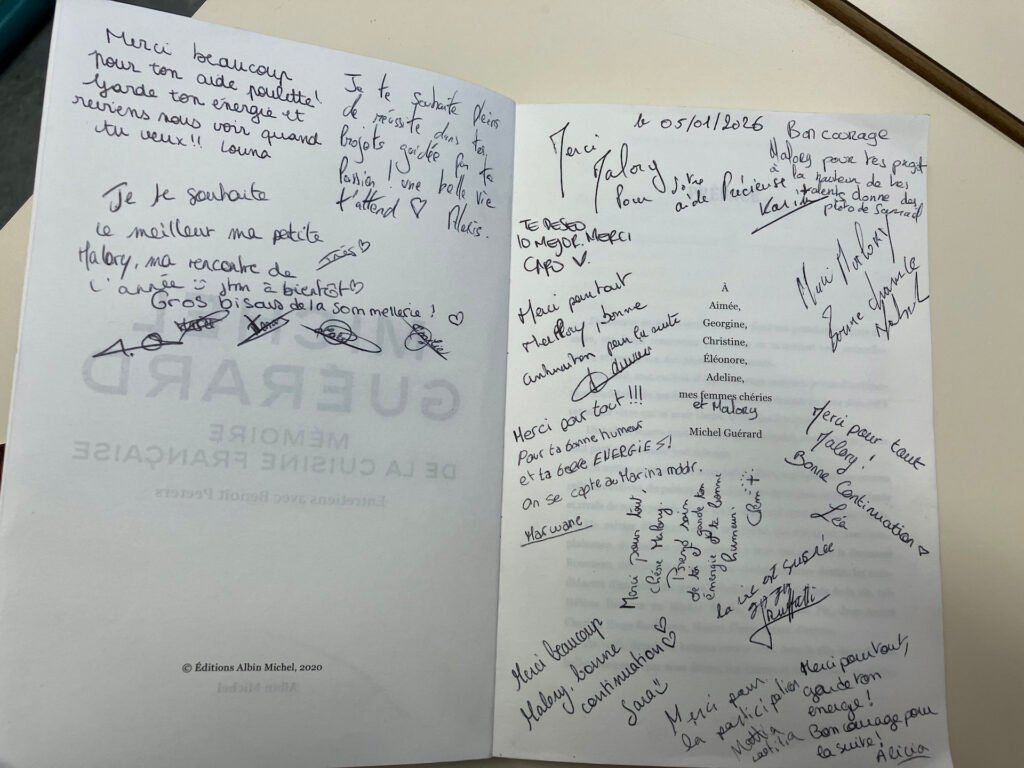 Merci beaucoup
pour ton aide poulette!
Garde ton énergie et
reviens nous voir quand
tu veux!! Louna
Je te souhaite pleins
de réussite dans tes
projets guidée par ta
passion! une belle vie
t'attend ♡ Alexis.
Je te souhaite
le meilleur ma petite
Malory, ma rencontre de
l'année jtm à bientôt♡
Inès♡
Gros bisous de la sommellerie! ♡
GUÉRARD
MÉMOIRE
DE LA CUISINE FRANÇAISE
Entretiens avec Benoît Peeters
© Éditions Albin Michel, 2020
Albin Michel
le 05/01/2026
Merci
Malory
Pour votre
aide Précieuse
Bon courage
Malory pour tes projet
à la hauteur de tes
talents donne des
Karim
TE DESEO
lO MEJOR. MERCI
CARO V.
Merci Malory
Bonne chance
Merci pour tout
Mallory, bonne
continuation pour la suite
À
Aimée,
Georgine,
Christine,
Éléonore,
Adeline,
mes femmes chéries
et Malory
Michel Guérard
Merci pour tout!!!
Pour ta bonne humeur
et ta belle ENERGIES!
on se capte au Marina
Marwane
Merci pour tout
Malory!
Bonne Continuation ♡
Léa
Merci pour tout,
chère Malory.
Prend soin
de toi et garde ton
énergie et ta bonne
humeur.
la vie est sucrée
Merci beaucoup
Malory, bonne
continuation♡♡
Sara
Merci pour
la participation
Mattia
Laetitia
Merci pour tout,
garde ton
énergie!
Bon courage pour
la suite!
Alicia